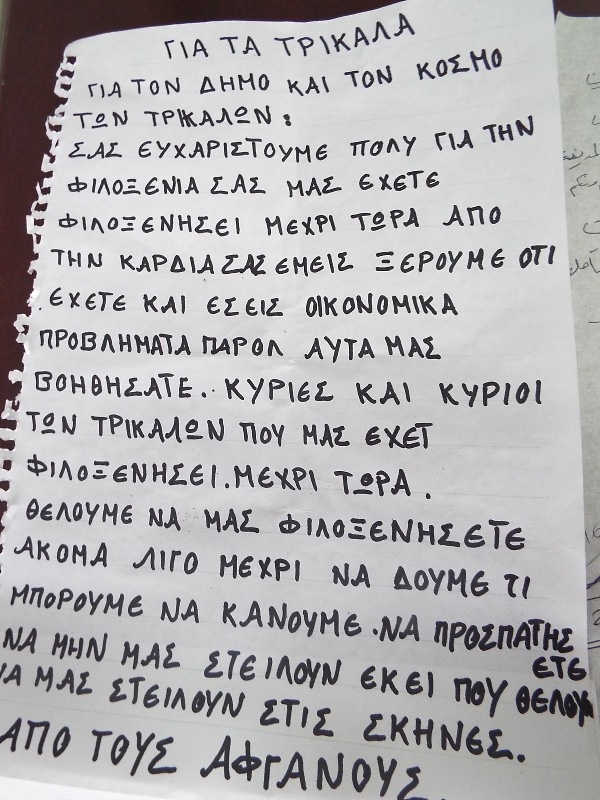 ΓΙΑ ΤΑ ΤΡΙΚΑΛΑ
ΓΙΑ ΤΟΝ ΔΗΜΟ ΚΑΙ ΤΟΝ ΚΟΣΜΟ
ΤΩΝ ΤΡΙΚΑΛΩΝ:
ΣΑΣ ΕΥΧΑΡΙΣΤΟΥΜΕ ΠΟΛΥ ΓΙΑ ΤΗΝ
ΦΙΛΟΞΕΝΙΑ ΣΑΣ ΜΑΣ ΕΧΕΤΕ
ΦΙΛΟΞΕΝΗΣΕΙ ΜΕΧΡΙ ΤΩΡΑ ΑΠΟ
ΤΗΝ ΚΑΡΔΙΑ ΣΑΣ ΕΜΕΙΣ ΞΕΡΟΥΜΕ ΟΤΙ
ΕΧΕΤΕ ΚΑΙ ΕΣΕΙΣ ΟΙΚΟΝΟΜΙΚΑ
ΠΡΟΒΛΗΜΑΤΑ ΠΑΡΟΛ ΑΥΤΑ ΜΑΣ
ΒΟΗΘΗΣΑΤΕ. ΚΥΡΙΕΣ ΚΑΙ ΚΥΡΙΟΙ
ΤΩΝ ΤΡΙΚΑΛΩΝ ΠΟΥ ΜΑΣ ΕΧΕΤ
ΦΙΛΟΞΕΝΗΣΕΙ. ΜΕΧΡΙ ΤΩΡΑ.
ΘΕΛΟΥΜΕ ΝΑ ΜΑΣ ΦΙΛΟΞΕΝΗΣΕΤΕ
ΑΚΟΜΑ ΛΙΓΟ ΜΕΧΡΙ ΝΑ ΔΟΥΜΕ ΤΙ
ΜΠΟΡΟΥΜΕ ΝΑ ΚΑΝΟΥΜΕ. ΝΑ ΠΡΟΣΠΑΤΗΣ
ΕΤΕ
ΝΑ ΜΗΝ ΜΑΣ ΣΤΕΙΛΟΥΝ ΕΚΕΙ ΠΟΥ ΘΕΛΟΥΝ
ΝΑ ΜΑΣ ΣΤΕΙΛΟΥΝ ΣΤΙΣ ΣΚΗΝΕΣ.
ΑΠΟ ΤΟΥΣ ΑΦΓΑΝΟΥΣ.